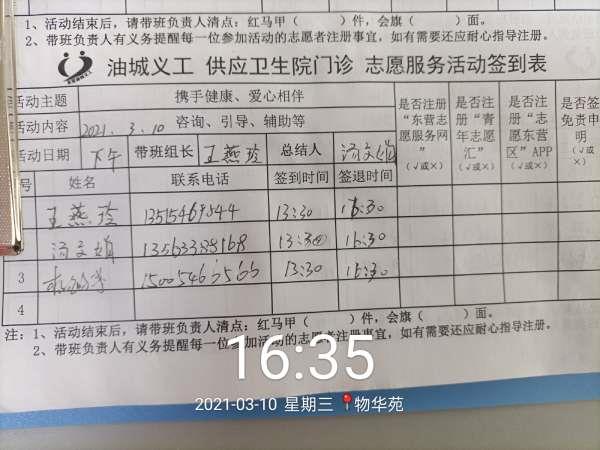 1、活动结束后，请带班负责人清点：红马甲（ ）件，会旗（ ）面。
2、带班负责人有义务提醒每一位参加活动的志愿者注册事宜，如有需要还应耐心指导注册。
油城义工 供应卫生院门诊 志愿服务活动签到表
活动主题 携手健康、爱心相伴 是否注册“东营志愿服务网”（√或×） 是否注册“青年志愿汇”（√或×） 是否注册“志愿东营区”APP（√或×） 是否签免责申明（√或×）
活动内容 2021.3.10 咨询、引导、辅助等
活动日期 下午 带班组长 王燕玲 总结人 冯文娟
号 姓名 联系电话 签到时间 签退时间
王燕玲 13:30 16:30
冯文娟 13:30 16:30
3 15005466566 13:30 16:30
4
注：1、活动结束后，请带班负责人清点：红马甲（ ）件，会旗（ ）面。
2、带班负责人有义务提醒每一位参加活动的志愿者注册事宜，如有需要还应耐心指导注册。
16:35
2021-03-10 星期三 物华苑